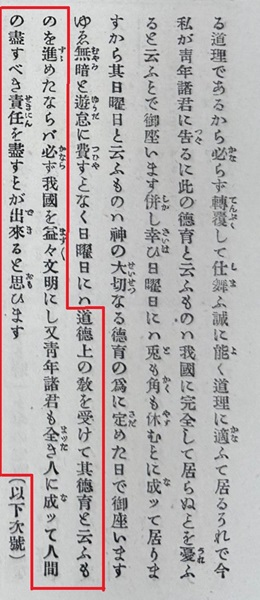 る道理であるから必らず轉覆して仕舞ふ誠に能く道理に適ふて居るうれで今
私が靑年諸君に告るに此の德育と云ふものハ我國に完全して居らぬとを憂ふ
ると云ふとで御座います併し幸ひ日曜日にハ兎も角も休むとに成ッて居りま
すから其日曜日と云ふものハ神の大切なる德育の爲に定めた日で御座います
ゆゑ無暗と遊怠に費すとなく日曜日にハ道德上の敎を受けて其德育と云ふも
のを進めたならバ必ず我國を益々文明にし又靑年諸君も全き人に成ッて人間
の盡すべき責任を盡すとが出來ると思ひます　（以下次號）